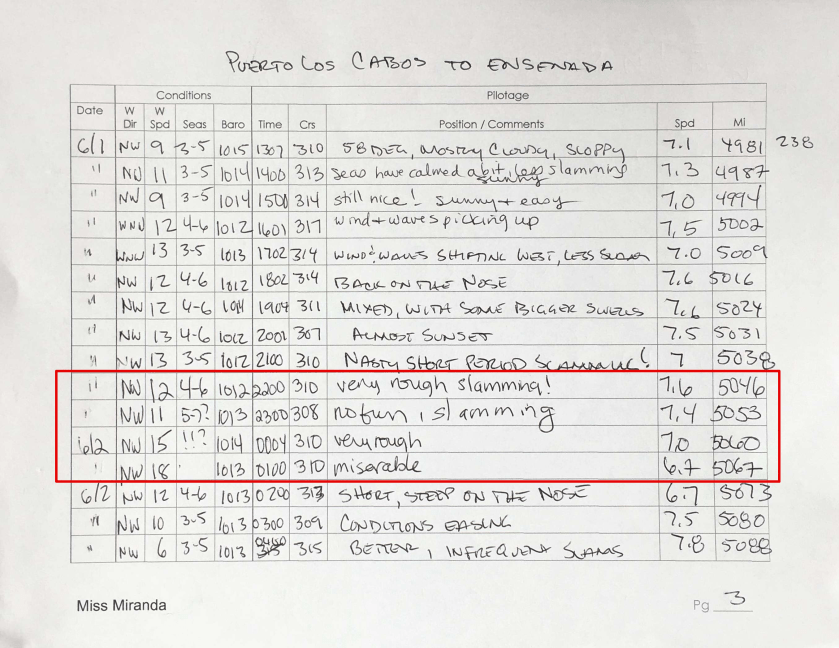 PUERTO LOS CABOS TO ENSENADA
Conditions Pilotage
Date W Dir W Spd Seas Baro Time Crs Position / Comments Spd Mi
6/1 NW 9 3-5 1015 1307 310 58 DEG, MOSTLY CLOUDY, SLOPPY 7.1 4981 238
" NW 11 3-5 1014 1400 313 seas have calmed a bit, less slamming sunny 7.3 4987
" NW 9 3-5 1014 1500 314 still nice! sunny + easy 7.0 4994
" WNW 12 4-6 1012 1601 317 wind + waves picking up 7.5 5002
" WNW 13 3-5 1013 1702 314 WIND & WAVES SHIFTING WEST, LESS SLAM 7.0 5009
" NW 12 4-6 1012 1802 314 BACK ON THE NOSE 7.6 5016
" NW 12 4-6 1014 1904 311 MIXED, WITH SOME BIGGER SWELLS 7.6 5024
" NW 13 4-6 1012 2001 307 ALMOST SUNSET 7.5 5031
" NW 13 3-5 1012 2100 310 NASTY SHORT PERIOD SLAMMING! 7 5038
" NW 12 4-6 1012 2200 310 very rough slamming! 7.6 5046
" NW 11 5-7? 1013 2300 308 no fun, slamming 7.4 5053
6/2 NW 15 !!? 1014 0004 310 very rough 7.0 5060
" NW 18 1013 0100 310 miserable 6.7 5067
6/2 NW 12 4-6 1013 0200 313 SHORT, STEEP ON THE NOSE 6.7 5073
" NW 10 3-5 1013 0300 309 CONDITIONS EASING 7.5 5080
" NW 6 3-5 1013 0400 315 BETTER, INFREQUENT SLAMS 7.8 5088
Miss Miranda Pg 3